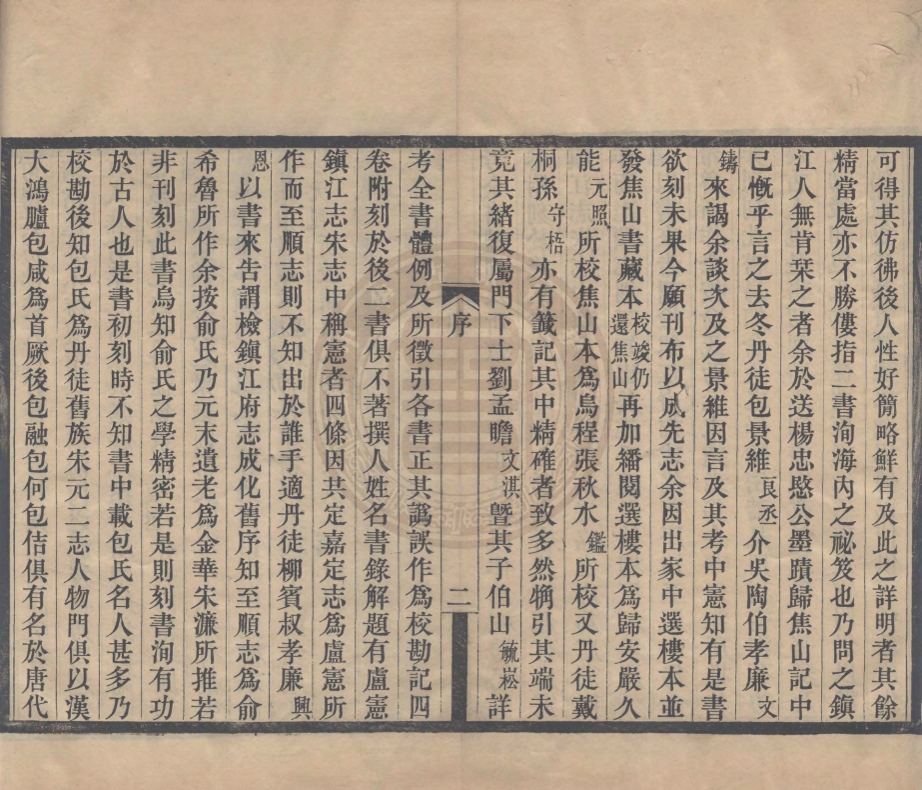 可得其仿彿後人性好簡略鮮有及此之詳明者其餘
精當處亦不勝僂指二書洵海內之祕笈也乃問之鎮
江人無肯栞之者余於送楊忠愍公墨蹟歸焦山記中
已慨乎言之去冬丹徒包景維良丞介吳陶伯孝廉文
鑄來謁余談次及之景維因言及其考中憲知有是書
欲刻未果今願刊布以成先志余因出家中選樓本並
發焦山書藏本校竣仍還焦山再加繙閱選樓本爲歸安嚴久
能元照所校焦山本爲烏程張秋水鑑所校又丹徒戴
桐孫守梧亦有籤記其中精確者致多然犕引其端未
竟其緒復屬門下士劉孟瞻文淇曁其子伯山毓崧詳
序
二
考全書體例及所徵引各書正其譌誤作爲校勘記四
卷附刻於後二書俱不著撰人姓名書錄解題有盧憲
鎮江志宋志中稱憲者四條因共定嘉定志爲盧憲所
作而至順志則不知出於誰手適丹徒柳賓叔孝廉興
恩以書來告謂檢鎮江府志成化舊序知至順志爲俞
希魯所作余按俞氏乃元末遺老爲金華宋濂所推若
非刊刻此書烏知俞氏之學精密若是則刻書洵有功
於古人也是書初刻時不知書中載包氏名人甚多乃
校勘後知包氏爲丹徒舊族宋元二志人物門俱以漢
大鴻臚包咸爲首厥後包融包何包佶俱有名於唐代